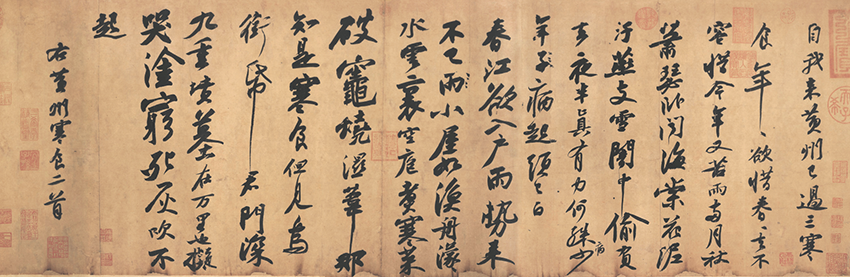 自我来黄州已過三寒
食年〻欲惜春〻去不
容惜今年又苦雨两月秋
蕭瑟卧聞海棠花泥
汙燕支雪闇中偷負
去夜半真有力何殊病少
年子病起頭已白
春江欲入户雨勢来
不已雨小屋如漁舟濛〻
水雲裏空庖煮寒菜
破竈燒濕葦那
知是寒食但見烏
銜帋君門深
九重墳墓在万里也擬
哭塗窮死灰吹不
起
右黄州寒食二首